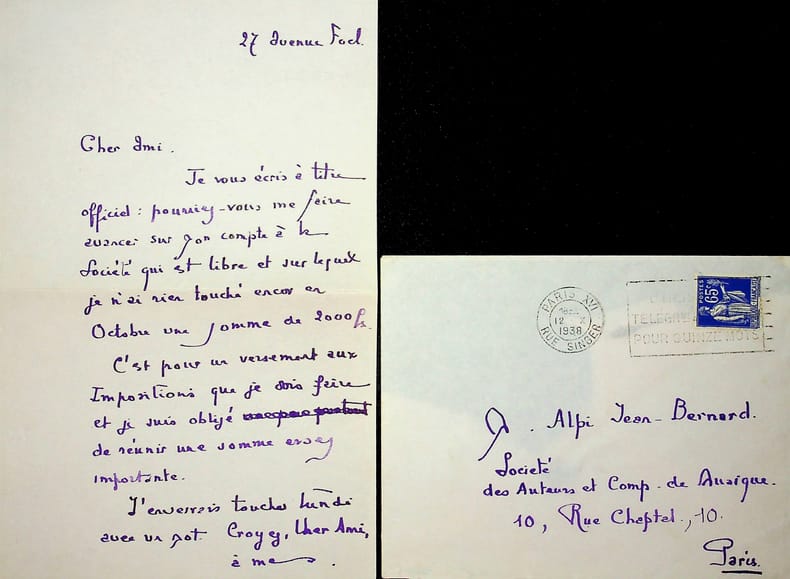 27 avenue Foch.
Cher Ami.
Je vous écris à titre
officiel : pourriez-vous me faire
avancer sur mon compte à la
Société qui est libre et sur lequel
je n'ai rien touché encore en
Octobre une somme de 2000 fs.
C'est pour un versement aux
Impositions que je dois faire
et je suis obligé
de réunir une somme assez
importante.
J'enverrais toucher lundi
avec un mot. Croyez, Cher Ami,
à me
PARIS XVI
12 X
1938
RUE SINGER
TELEGR
POUR QUINZE MOTS
POSTES
65c
M. Alpi Jean-Bernard.
Société
des Auteurs et Comp. de Musique.
10, Rue Chaptal, 10.
Paris.